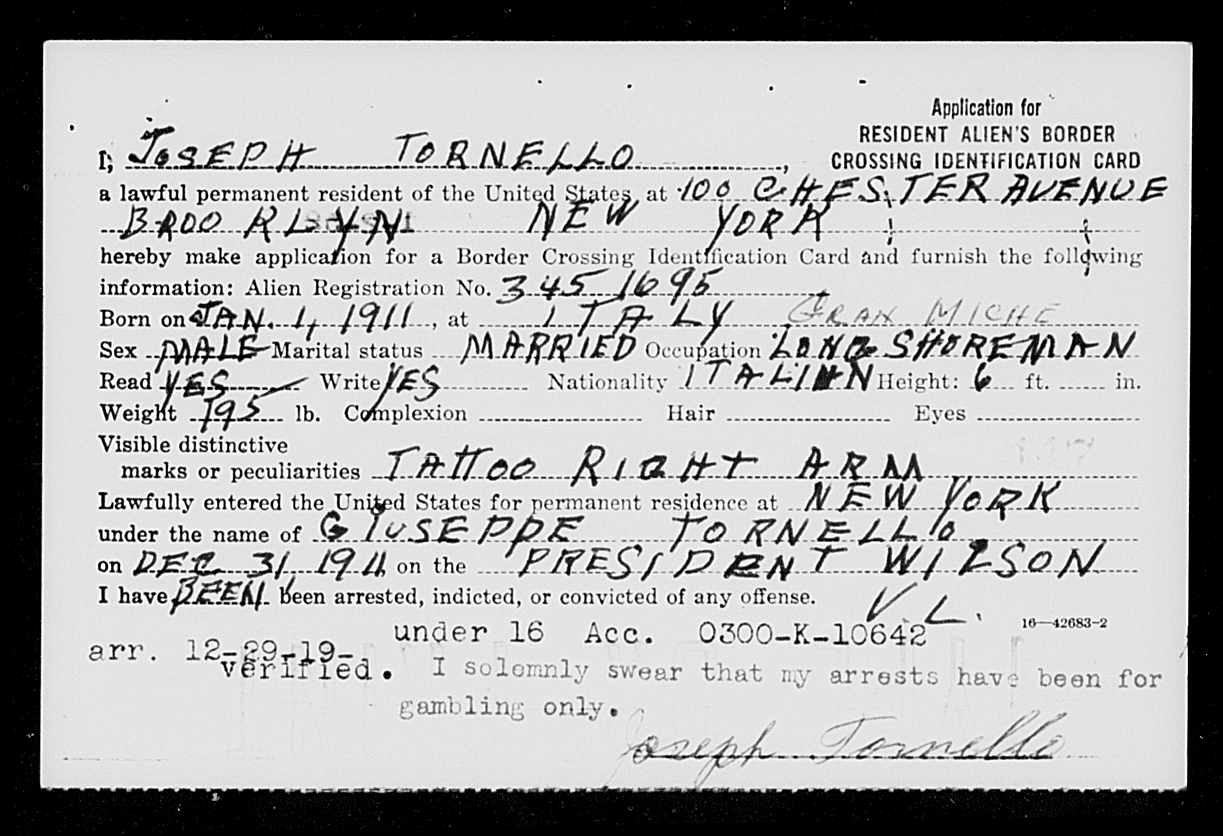 Application for
RESIDENT ALIEN'S BORDER
CROSSING IDENTIFICATION CARD
I, JOSEPH TORNELLO,
a lawful permanent resident of the United States, at 100 CHESTER AVENUE
BROOKLYN NEW YORK
hereby make application for a Border Crossing Identification Card and furnish the following
information: Alien Registration No. 345 1695
Born on JAN. 1, 1911, at ITALY GRAN MICHE
Sex MALE Marital status MARRIED Occupation LONGSHOREMAN
Read YES Write YES Nationality ITALIAN Height: 6 ft. in.
Weight 195 lb. Complexion Hair Eyes
Visible distinctive
marks or peculiarities TATTOO RIGHT ARM
Lawfully entered the United States for permanent residence at NEW YORK
under the name of GIUSEPPE TORNELLO
on DEC 31, 1911 on the PRESIDENT WILSON
I have BEEN been arrested, indicted, or convicted of any offense. V. L.
16—42683-2
under 16 Acc. 0300-K-10642
arr. 12-29-19-
verified. I solemnly swear that my arrests have been for
gambling only.
Joseph Tornello